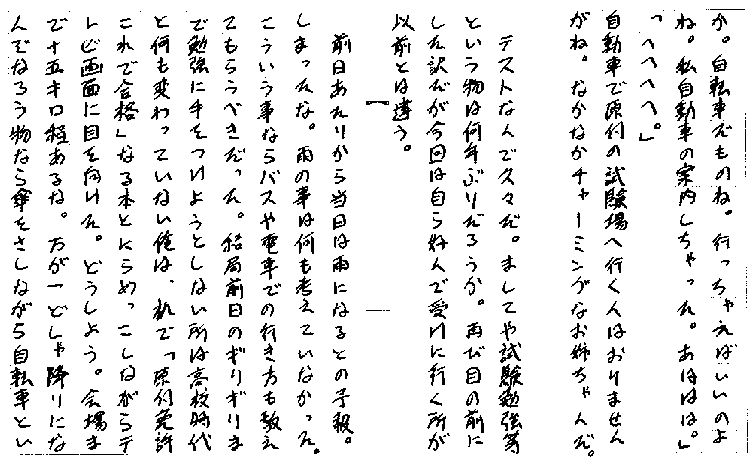 か。自転車だものね。行っちゃえばいいのよ
ね。私自動車の案内しちゃった。あははは。」
「へへへへ。」
自動車で原付の試験場へ行く人はおりません
がね。なかなかチャーミングなお姉ちゃんだ。
テストなんて久々だ。ましてや試験勉強等
という物は何年ぶりだろうか。再び目の前に
した訳だが今回は自ら好んで受けに行く所が
以前とは違う。
前日あたりから当日は雨になるとの予報。
しまったな。雨の事は何も考えていなかった。
こういう事ならバスや電車での行き方も教え
てもらうべきだった。結局前日のぎりぎりま
で勉強に手をつけようとしない所は高校時代
と何も変わっていない俺は、机で「原付免許
これで合格」なる本とにらめっこしながらテ
レビ画面に目を向けた。どうしよう。会場ま
で十五キロ程あるな。万が一どしゃ降りにな
んでなろう物なら傘をさしながら自転車とい